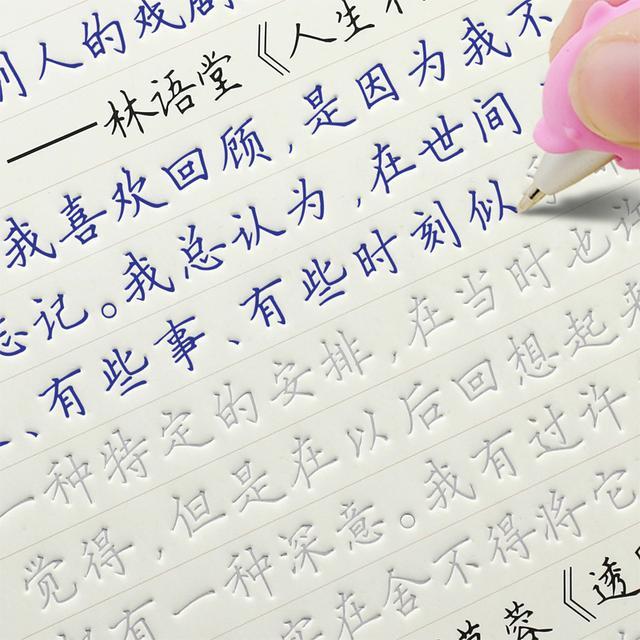 别人的戏剧
——林语堂《人生
我喜欢回顾,是因为我不
忘记。我总认为,在世间
、有些事、有些时刻似
一种特定的安排,在当时也许
觉得,但是在以后回想起来
都有一种深意。我有过许
实在舍不得将它
蓉《透